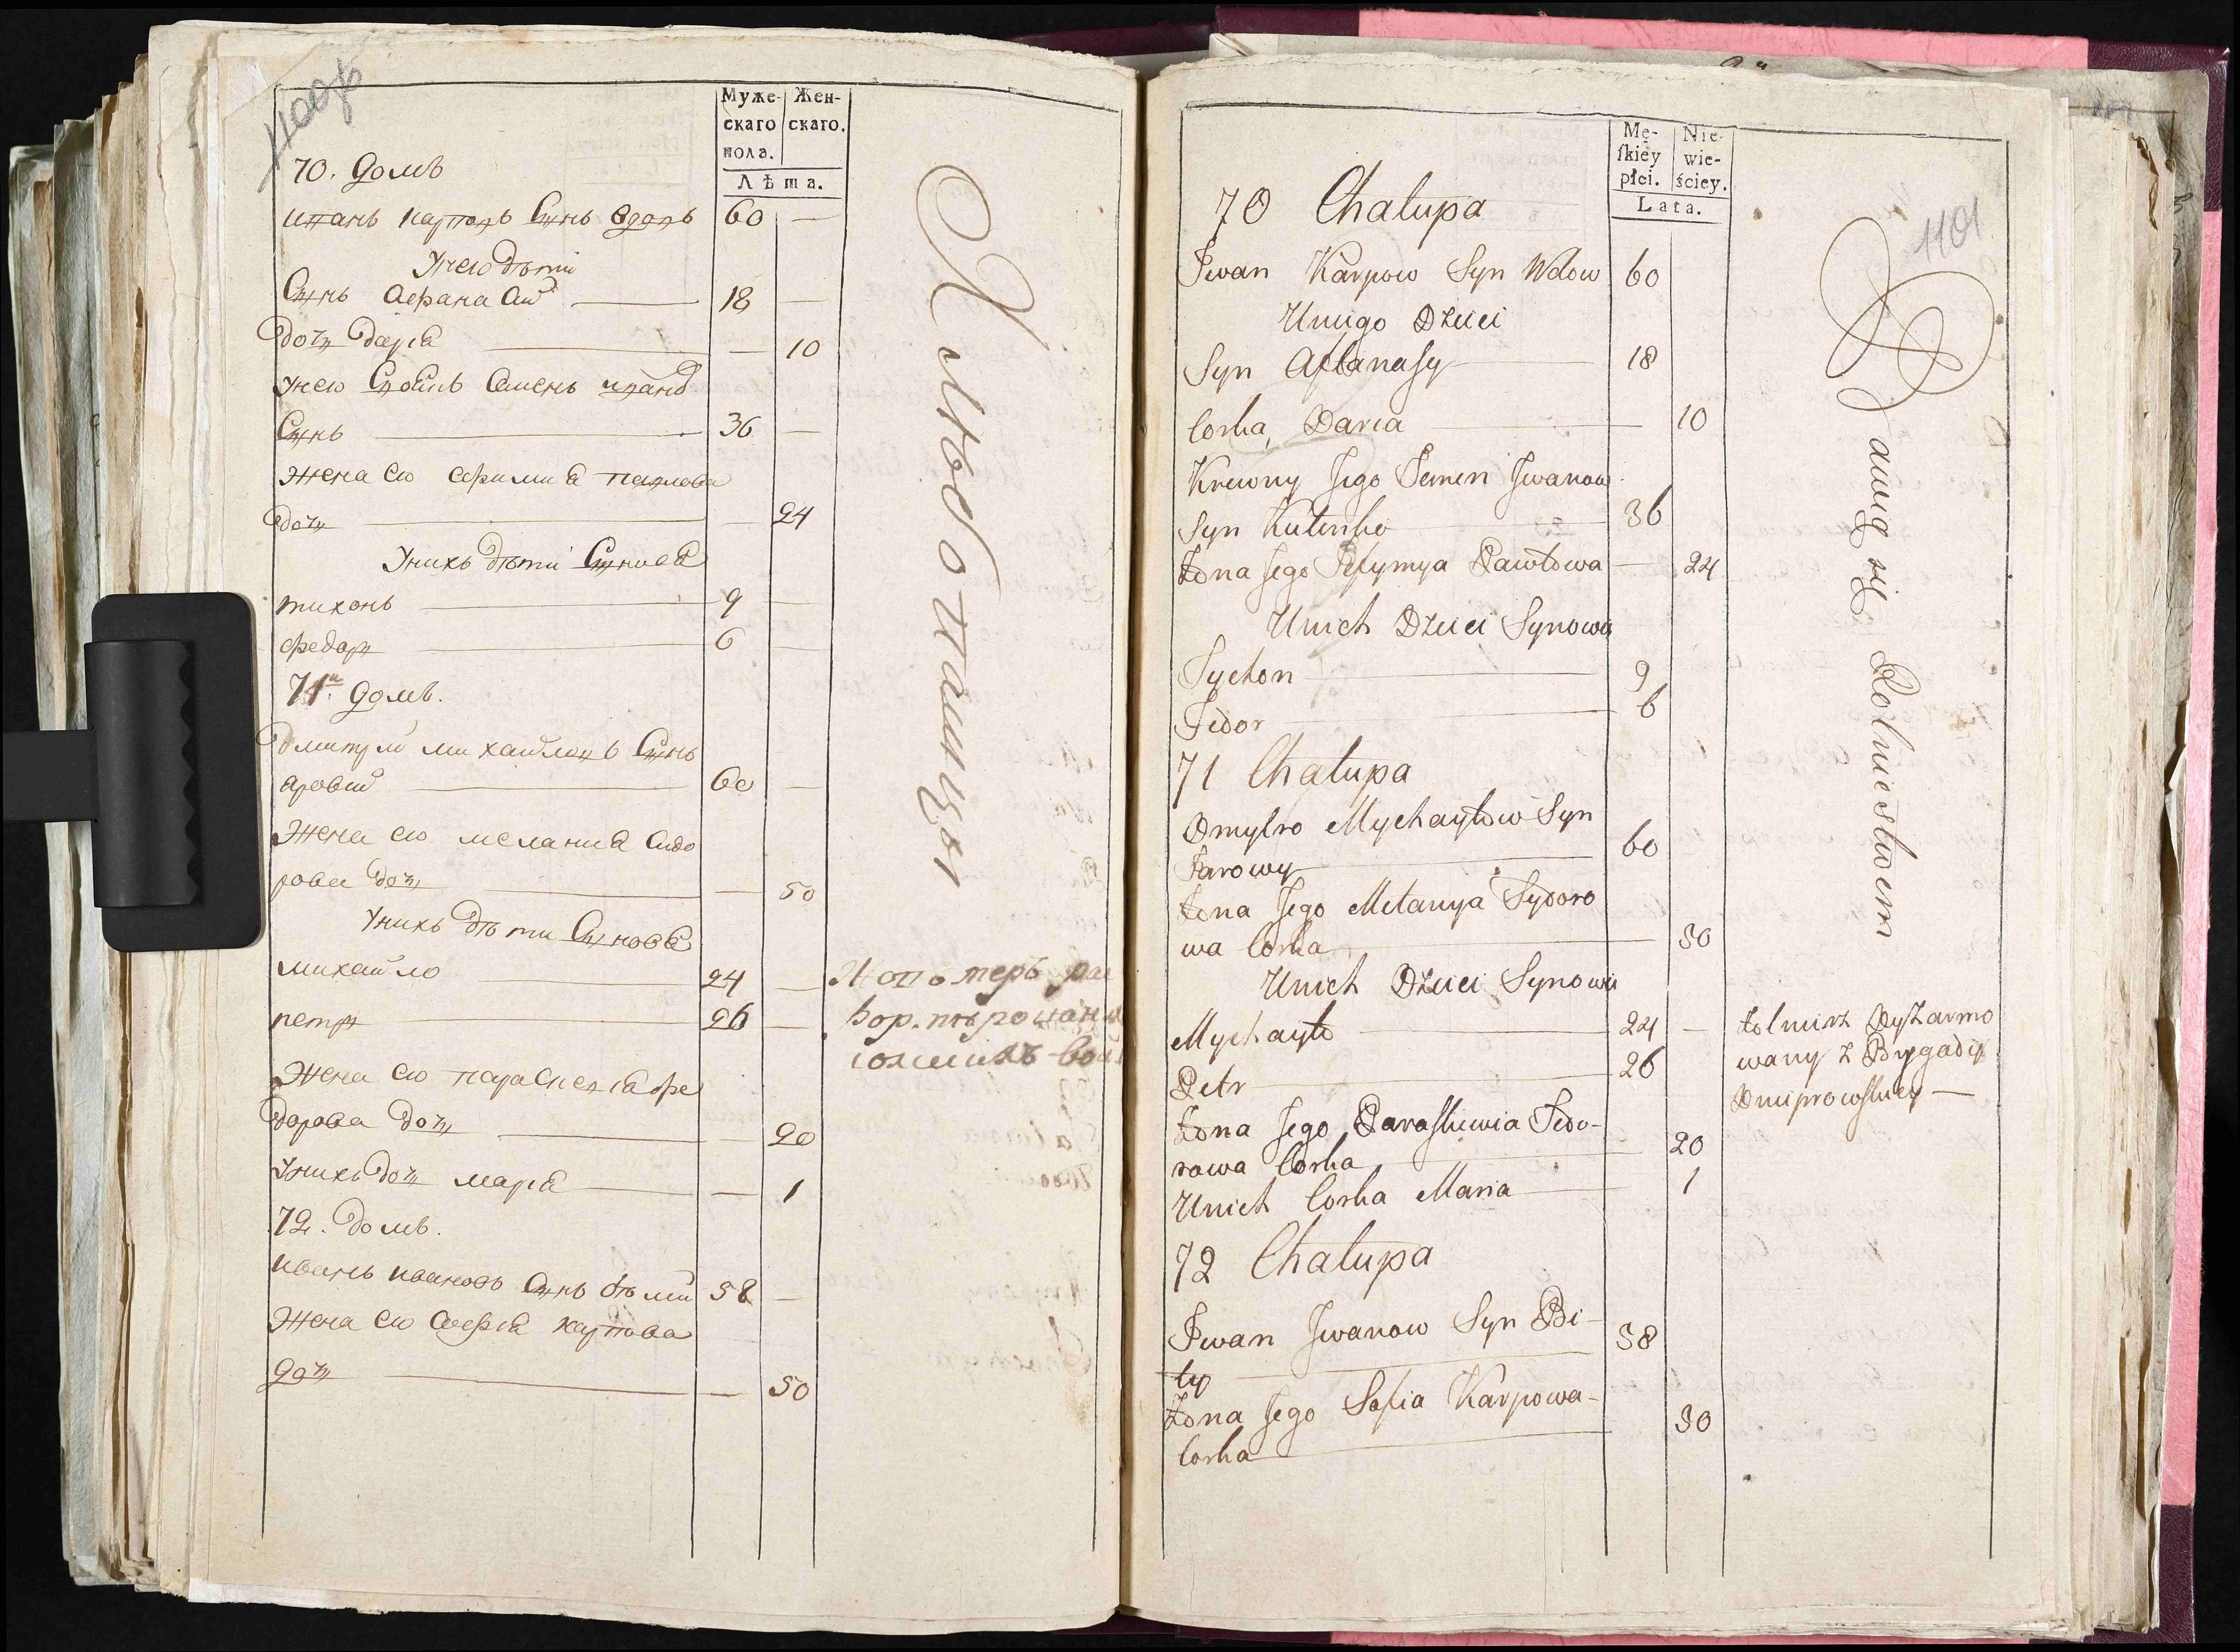 1100об
Муже-
скаго
пола.
Жен-
скаго.
Лѣта.
70. Домъ
иванъ карповъ Сынъ вдовъ 60 —
Унего дѣти
Сынъ Афанасий 18 —
дочь дарїа — 10
унего Семенъ ивановъ
Сынъ 36 —
жена его ефимиа павлова
дочь 24
Унихъ дѣти Сыновѧ
тихонъ 9 —
федоръ 6 —
71й домъ.
дмитрий михайловъ Сынъ
аровый 60 —
Жена его меланиа Сидо
рова дочь — 50
Унихъ дѣти Сыновѧ
михайло 24 —
петръ 26 —
Жена его параскевїа фе
дорова дочь 20
Унихъ дочь марїа — 1
72. домъ.
иванъ ивановъ Сынъ бѣлий 58 —
Жена его Софїа карпова
дочь — 50
Хлѣбопашцы
1101
Mę-
skiey
płci.
Nie-
wie-
ściey.
Lata.
70 Chałupa
Iwan Karpow Syn Wdow 60
Uniego Dzieci
Syn Aftanasy 18
Corka Daria 10
Krewny Jego Semen Iwanow
Syn Kutenko 36
Żona Jego Jefymya Pawłowa — 24
Unich Dzieci Synowie
Tychon 9
Fedor 6
71 Chałupa
Dmytro Mychayłow Syn
Jarowy 60
Żona Jego Mełanya Sydoro
wa Corka 50
Unich Dzieci Synowie
Mychayło 24 —
Petr 26
żołnierz Dyżarmo
wany z Brygady
Dnieprowskiey —
Żona Jego Paraskiewia Fedo-
rowa Corka 20
Unich Corka Maria 1
72 Chałupa
Iwan Iwanow Syn Bi-
ły 58
Żona Jego Sofia Karpowa-
Corka 50
Bawią się Rolnictwem